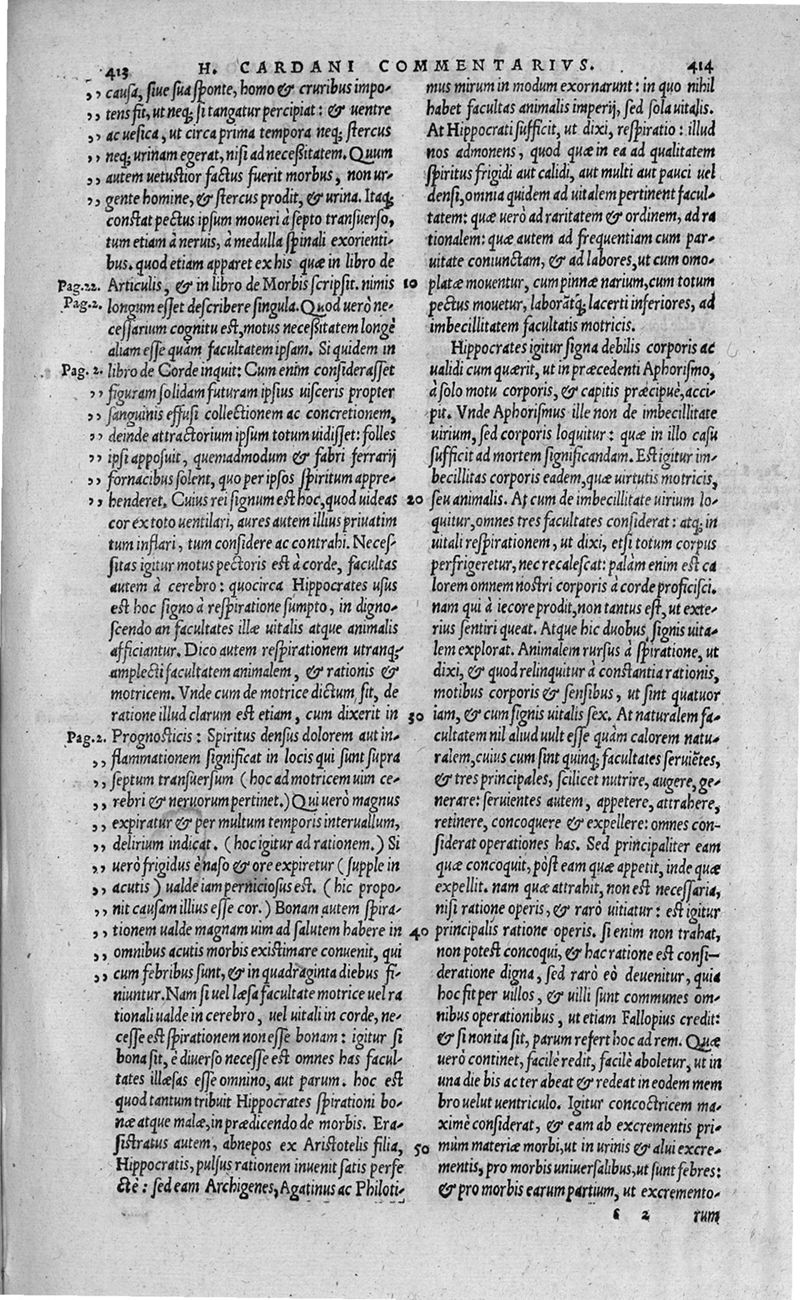 413 H. CARDANI COMMENTARIVS. 414
,, causa, siue sua sponte, homo & cruribus impo-
,, tens fit, ut neq; si tangatur percipiat: & uentre
,, ac uesica, ut circa prima tempora neq; stercus
,, neq; urinam egerat, nisi ad necessitatem. Quum
,, autem uetustior factus fuerit morbus, non ur-
,, gente homine, & stercus prodit, & urina. Itaq;
constat pectus ipsum moueri à septo transuerso,
tum etiam à neruis, à medulla spinali exorienti-
bus. quod etiam apparet ex his quæ in libro de
Pag.22. Articulis, & in libro de Morbis scripsit. nimis
Pag.2. longum esset describere singula. Quod uerò ne-
cessarium cognitu est, motus necessitatem longè
aliam esse quàm facultatem ipsam. Si quidem in
Pag. 2. libro de Corde inquit: Cum enim considerasset
,, figuram solidam futuram ipsius uisceris propter
,, sanguinis effusi collectionem ac concretionem,
,, deinde attractorium ipsum totum uidisset: folles
,, ipsi apposuit, quemadmodum & fabri ferrarij
,, fornacibus solent, quo per ipsos spiritum appre-
,, henderet. Cuius rei signum est hoc, quod uideas
cor ex toto uentilari, aures autem illius priuatim
tum inflari, tum considere ac contrahi. Neces-
sitas igitur motus pectoris est à corde, facultas
autem à cerebro: quocirca Hippocrates usus
est hoc signo à respiratione sumpto, in digno-
scendo an facultates illæ uitalis atque animalis
afficiantur. Dico autem respirationem utranq;
amplecti facultatem animalem, & rationis &
motricem. Vnde cum de motrice dictum sit, de
ratione illud clarum est etiam, cum dixerit in
Pag.2. Prognosticis: Spiritus densus dolorem aut in-
,, flammationem significat in locis qui sunt supra
,, septum transuersum (hoc ad motricem uim ce-
,, rebri & neruorum pertinet.) Qui uerò magnus
,, expiratur & per multum temporis interuallum,
,, delirium indicat. (hoc igitur ad rationem.) Si
,, uerò frigidus è naso & ore expiretur (supple in
,, acutis) ualde iam perniciosus est. (hic propo-
,, nit causam illius esse cor.) Bonam autem spira-
,, tionem ualde magnam uim ad salutem habere in
,, omnibus acutis morbis existimare conuenit, qui
,, cum febribus sunt, & in quadraginta diebus fi-
niuntur. Nam si uel læsa facultate motrice uel ra
tionali ualde in cerebro, uel uitali in corde, ne-
cesse est spirationem non esse bonam: igitur si
bona sit, è diuerso necesse est omnes has facul-
tates illæsas esse omnino, aut parum. hoc est
quod tantum tribuit Hippocrates spirationi bo-
næ atque malæ, in prædicendo de morbis. Era-
sistratus autem, abnepos ex Aristotelis filia,
Hippocratis, pulsus rationem inuenit satis perfe
ctè: sed eam Archigenes, Agatinus ac Philoti-
mus mirum in modum exornarunt: in quo nihil
habet facultas animalis imperij, sed sola uitalis.
At Hippocrati sufficit, ut dixi, respiratio: illud
nos admonens, quod quæ in ea ad qualitatem
spiritus frigidi aut calidi, aut multi aut pauci uel
densi, omnia quidem ad uitalem pertinent facul-
tatem: quæ uerò ad raritatem & ordinem, ad ra
tionalem: quæ autem ad frequentiam cum par-
uitate coniunctam, & ad labores, ut cum omo-
10 platæ mouentur, cum pinnæ narium, cum totum
pectus mouetur, laborātq; lacerti inferiores, ad
imbecillitatem facultatis motricis.
Hippocrates igitur signa debilis corporis ac
ualidi cum quærit, ut in præcedenti Aphorismo,
à solo motu corporis, & capitis præcipuè, acci-
pit. Vnde Aphorismus ille non de imbecillitate
uirium, sed corporis loquitur: quæ in illo casu
sufficit ad mortem significandam. Est igitur im-
becillitas corporis eadem, quæ uirtutis motricis,
20 seu animalis. At cum de imbecillitate uirium lo-
quitur, omnes tres facultates considerat: atq; in
uitali respirationem, ut dixi, etsi totum corpus
perfrigeretur, nec recalescat: palàm enim est ca
lorem omnem nostri corporis à corde proficisci.
nam qui à iecore prodit, non tantus est, ut exte-
rius sentiri queat. Atque hic duobus signis uita-
lem explorat. Animalem rursus à spiratione, ut
dixi, & quod relinquitur à constantia rationis,
motibus corporis & sensibus, ut sint quatuor
30 iam, & cum signis uitalis sex. At naturalem fa-
cultatem nil aliud uult esse quàm calorem natu-
ralem, cuius cum sint quinq; facultates seruiētes,
& tres principales, scilicet nutrire, augere, ge-
nerare: seruientes autem, appetere, attrahere,
retinere, concoquere & expellere: omnes con-
siderat operationes has. Sed principaliter eam
quæ concoquit, pòst eam quæ appetit, inde quæ
expellit. nam quæ attrahit, non est necessaria,
nisi ratione operis, & rarò uitiatur: est igitur
40 principalis ratione operis. si enim non trahat,
non potest concoqui, & hac ratione est consi-
deratione digna, sed rarò eò deuenitur, quia
hoc fit per uillos, & uilli sunt communes om-
nibus operationibus, ut etiam Fallopius credit:
& si non ita sit, parum refert hoc ad rem. Quæ
uerò continet, facilè redit, facilè aboletur, ut in
una die bis ac ter abeat & redeat in eodem mem
bro uelut uentriculo. Igitur concoctricem ma-
ximè considerat, & eam ab excrementis pri-
50 mùm materiæ morbi, ut in urinis & alui excre-
mentis, pro morbis uniuersalibus, ut sunt febres:
& pro morbis earum partium, ut excremento-
2 rum